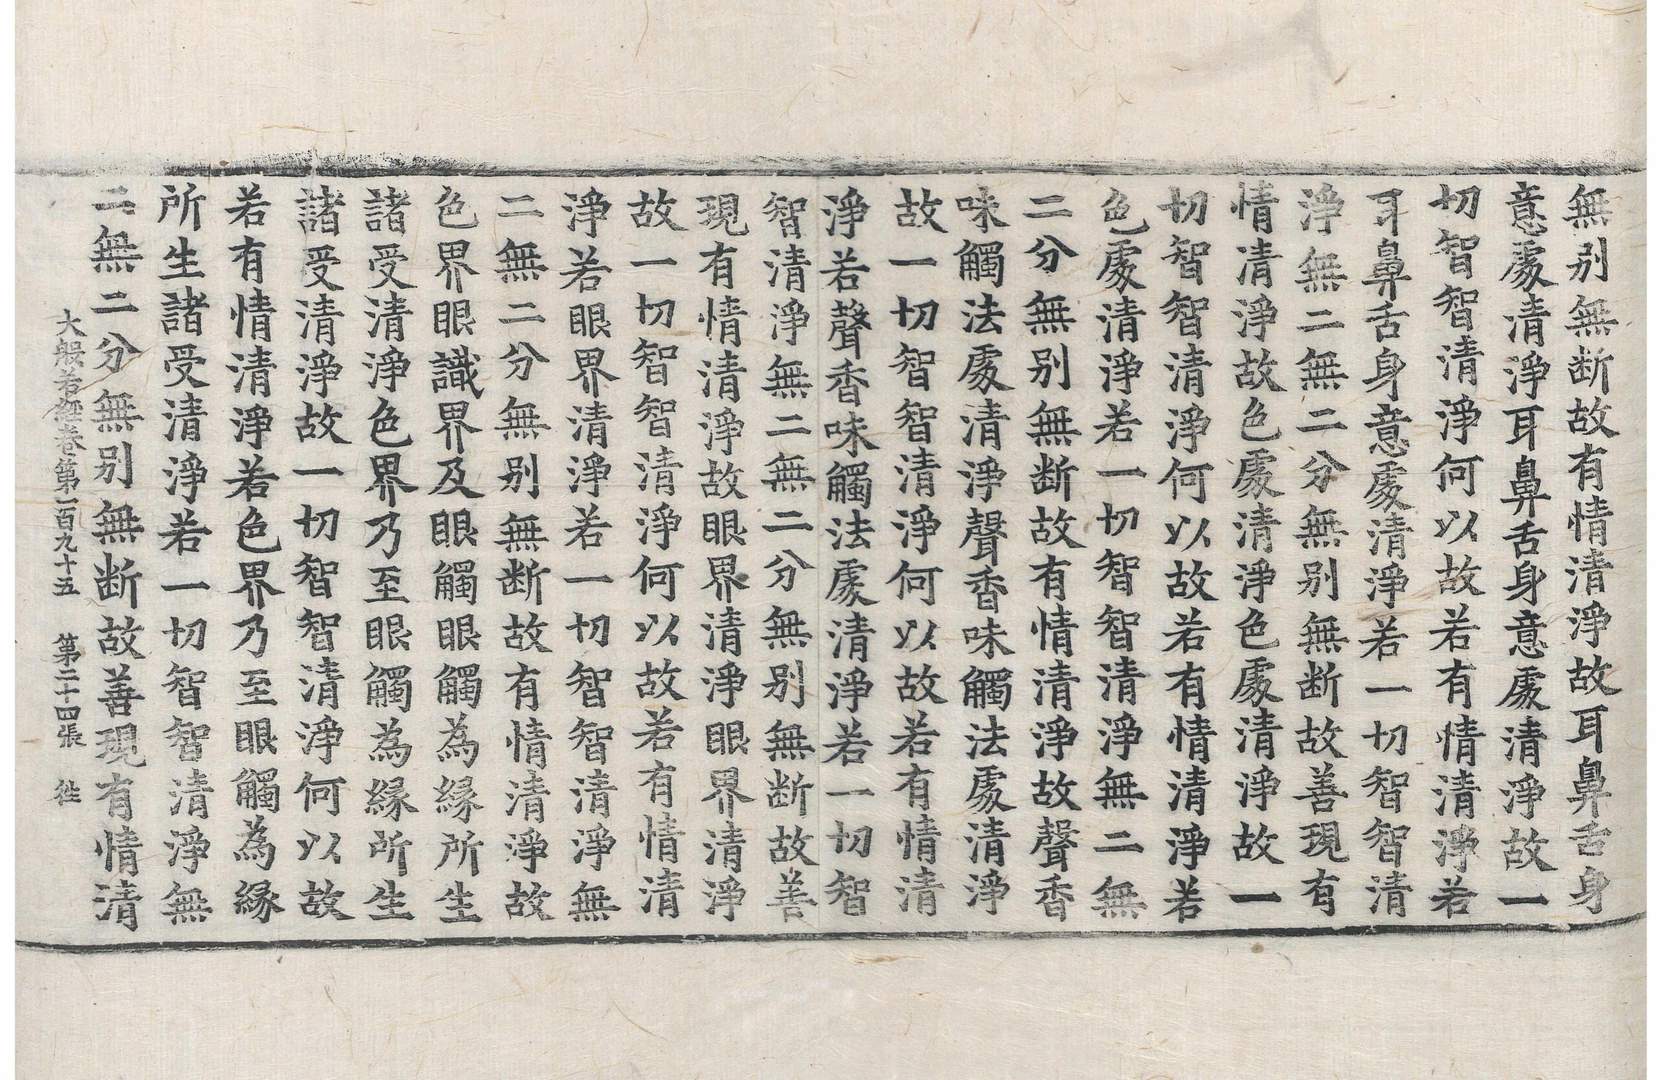 無别無断故有情清淨故耳鼻舌身
意處清淨耳鼻舌身意處清淨故一
切智智清淨何以故若有情清淨若
耳鼻舌身意處清淨若一切智智清
淨無二無二分無别無断故善現有
情清淨故色處清淨色處清淨故一
切智智清淨何以故若有情清淨若
色處清淨若一切智智清淨無二無
二分無别無断故有情清淨故聲香
味觸法處清淨聲香味觸法處清淨
故一切智智清淨何以故若有情清
淨若聲香味觸法處清淨若一切智
智清淨無二無二分無别無断故善
現有情清淨故眼界清淨眼界清淨
故一切智智清淨何以故若有情清
淨若眼界清淨若一切智智清淨無
二無二分無别無断故有情清淨故
色界眼識界及眼觸眼觸為緣所生
諸受清淨色界乃至眼觸為緣所生
諸受清淨故一切智智清淨何以故
若有情清淨若色界乃至眼觸為緣
所生諸受清淨若一切智智清淨無
二無二分無别無断故善現有情清
大般若經卷第一百九十五 第二十四張 徃